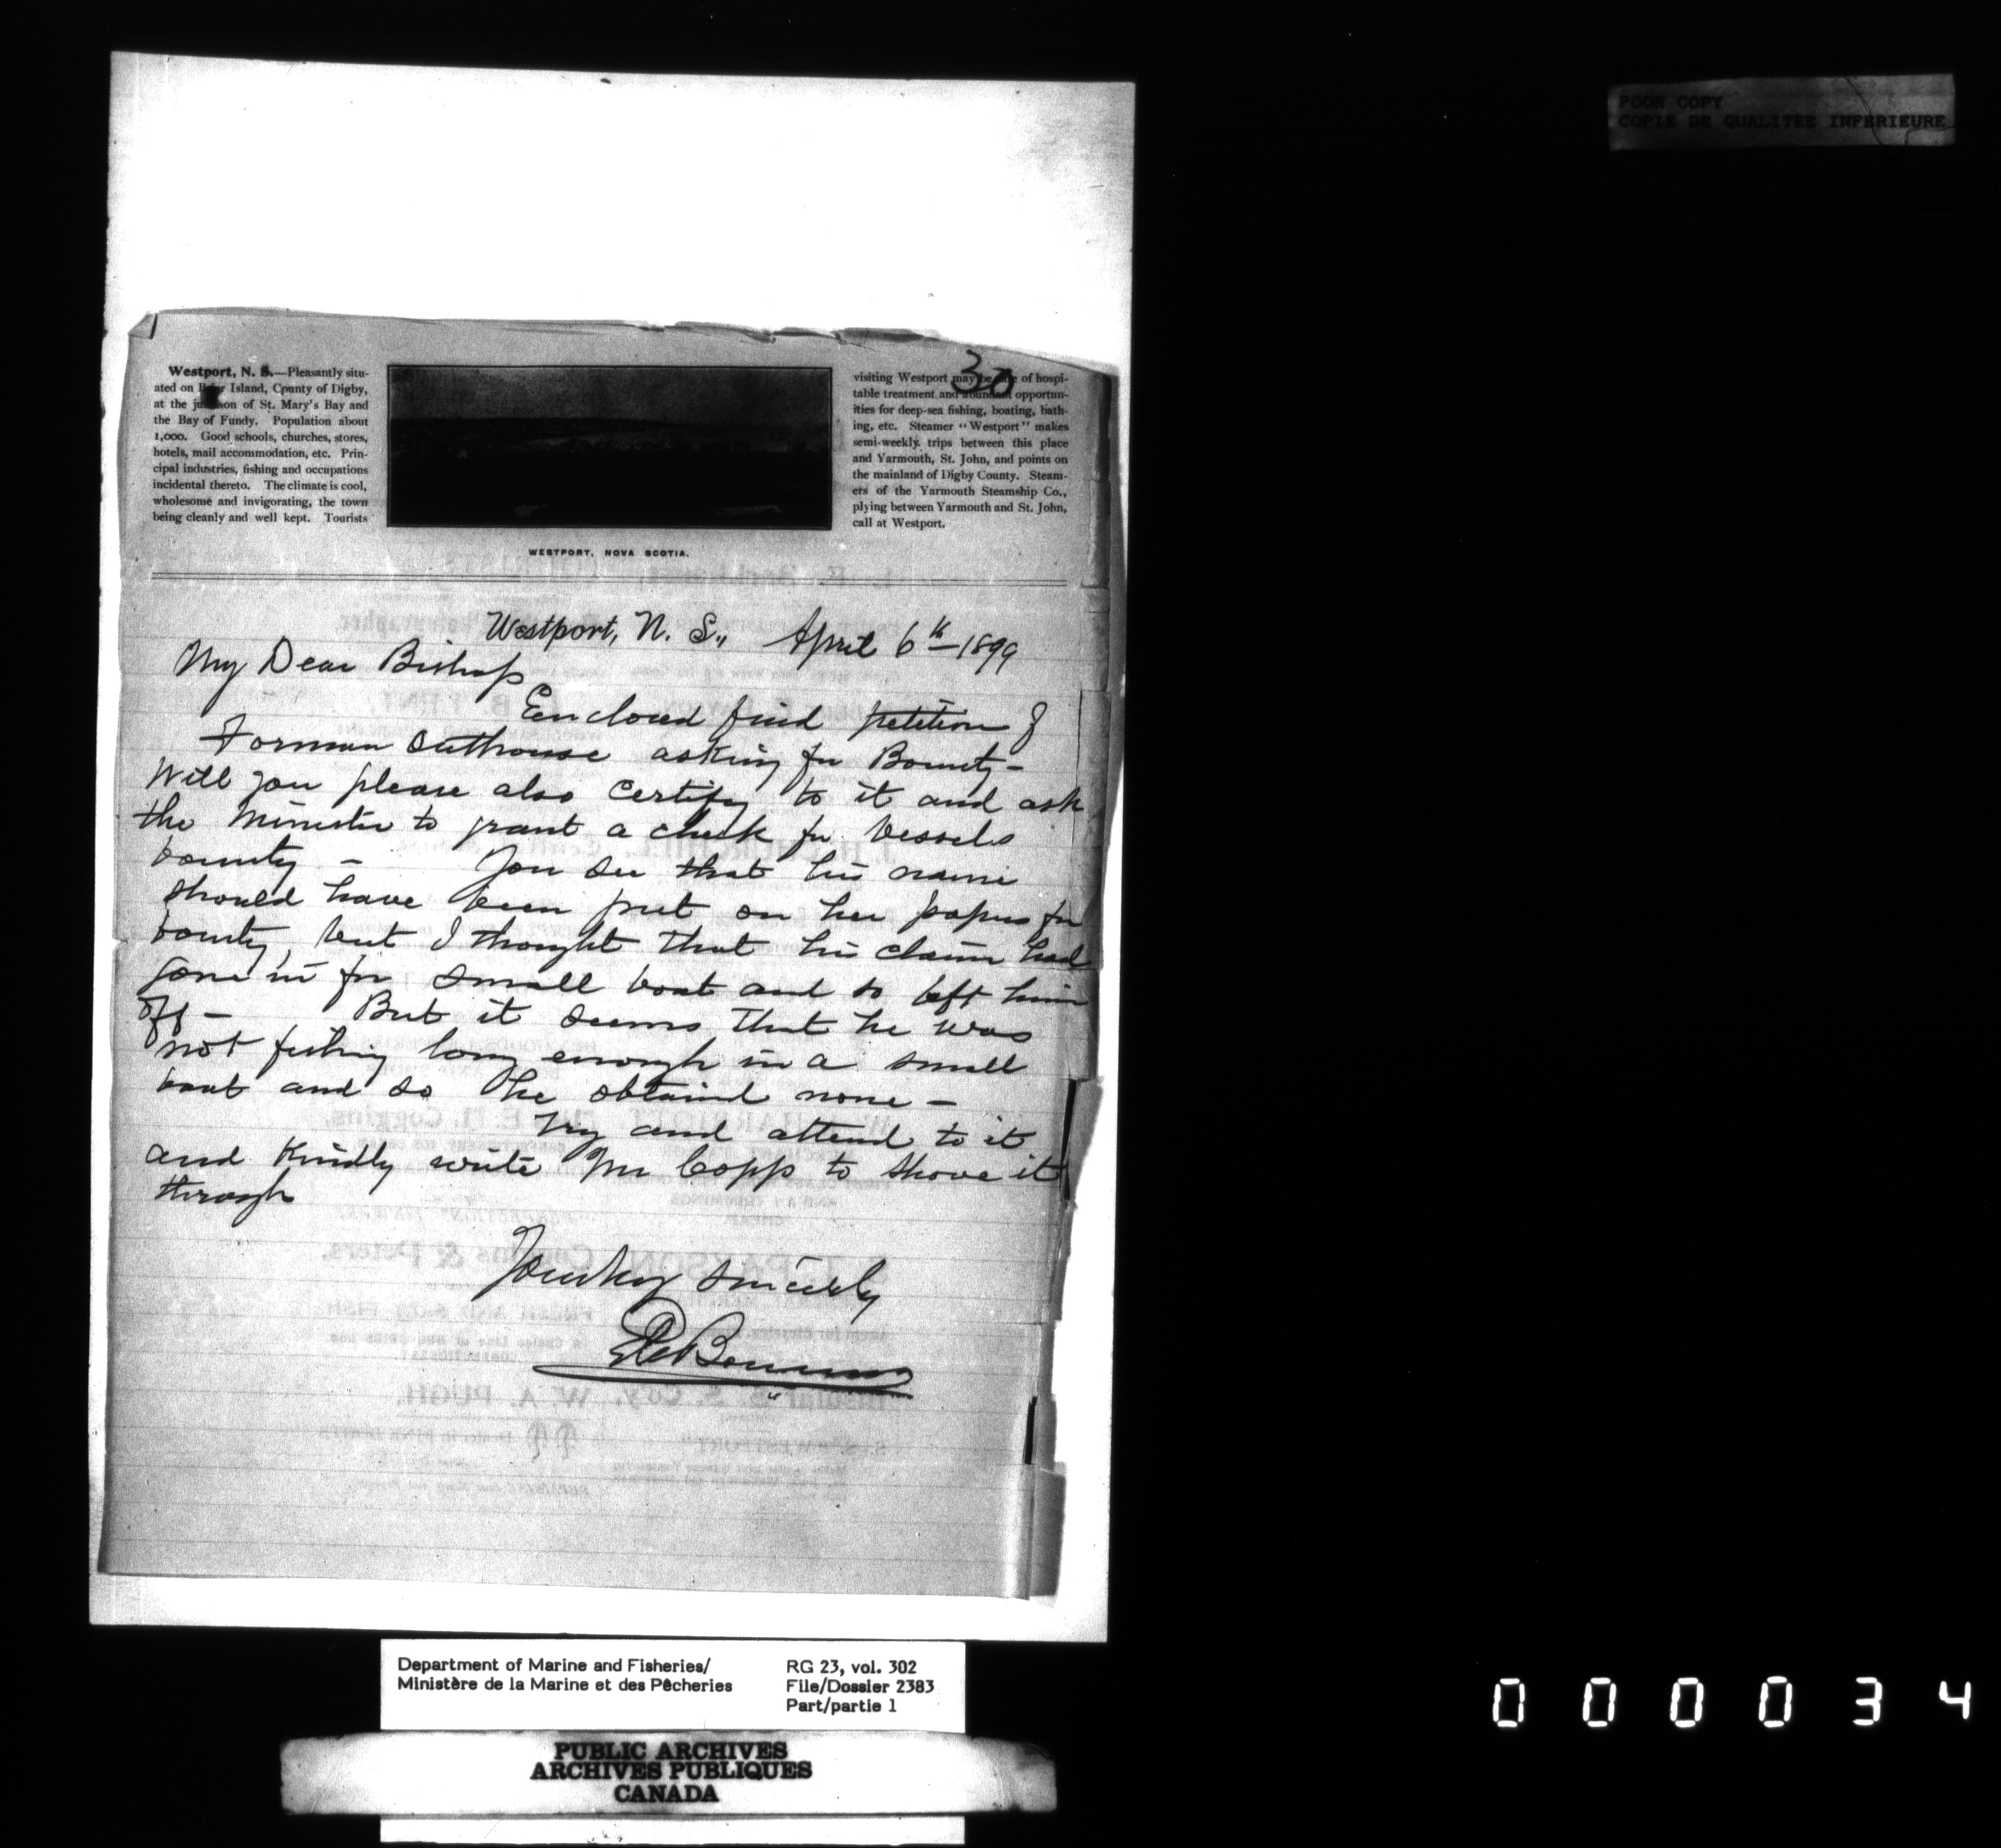 POOR COPY
COPIE DE QUALITEE INFERIEURE
30
Westport, N. S.—Pleasantly situ-
ated on Brier Island, County of Digby,
at the junction of St. Mary's Bay and
the Bay of Fundy. Population about
1,000. Good schools, churches, stores,
hotels, mail accommodation, etc. Prin-
cipal industries, fishing and occupations
incidental thereto. The climate is cool,
wholesome and invigorating, the town
being cleanly and well kept. Tourists
visiting Westport may be sure of hospi-
table treatment and abundant opportun-
ities for deep-sea fishing, boating, bath-
ing, etc. Steamer "Westport" makes
semi-weekly trips between this place
and Yarmouth, St. John, and points on
the mainland of Digby County. Steam-
ers of the Yarmouth Steamship Co.,
plying between Yarmouth and St. John,
call at Westport.
WESTPORT, NOVA SCOTIA.
Westport, N. S., April 6th 1899
My Dear Bishop
Enclosed find petition of
Forman Outhouse asking for Bounty -
Will you please also certify to it and ask
the Minister to grant a check for Vessels
bounty - You see that his name
should have been put on her papers for
bounty, but I thought that his claim had
gone in for small boat and so left him
off - But it seems that he was
not fishing long enough in a small
boat and so he obtained none -
Try and attend to it
and Kindly write Mr Copp to shove it
through
Sincerely
Department of Marine and Fisheries/
Ministère de la Marine et des Pêcheries
RG 23, vol. 302
File/Dossier 2383
Part/partie 1
PUBLIC ARCHIVES
ARCHIVES PUBLIQUES
CANADA
000034